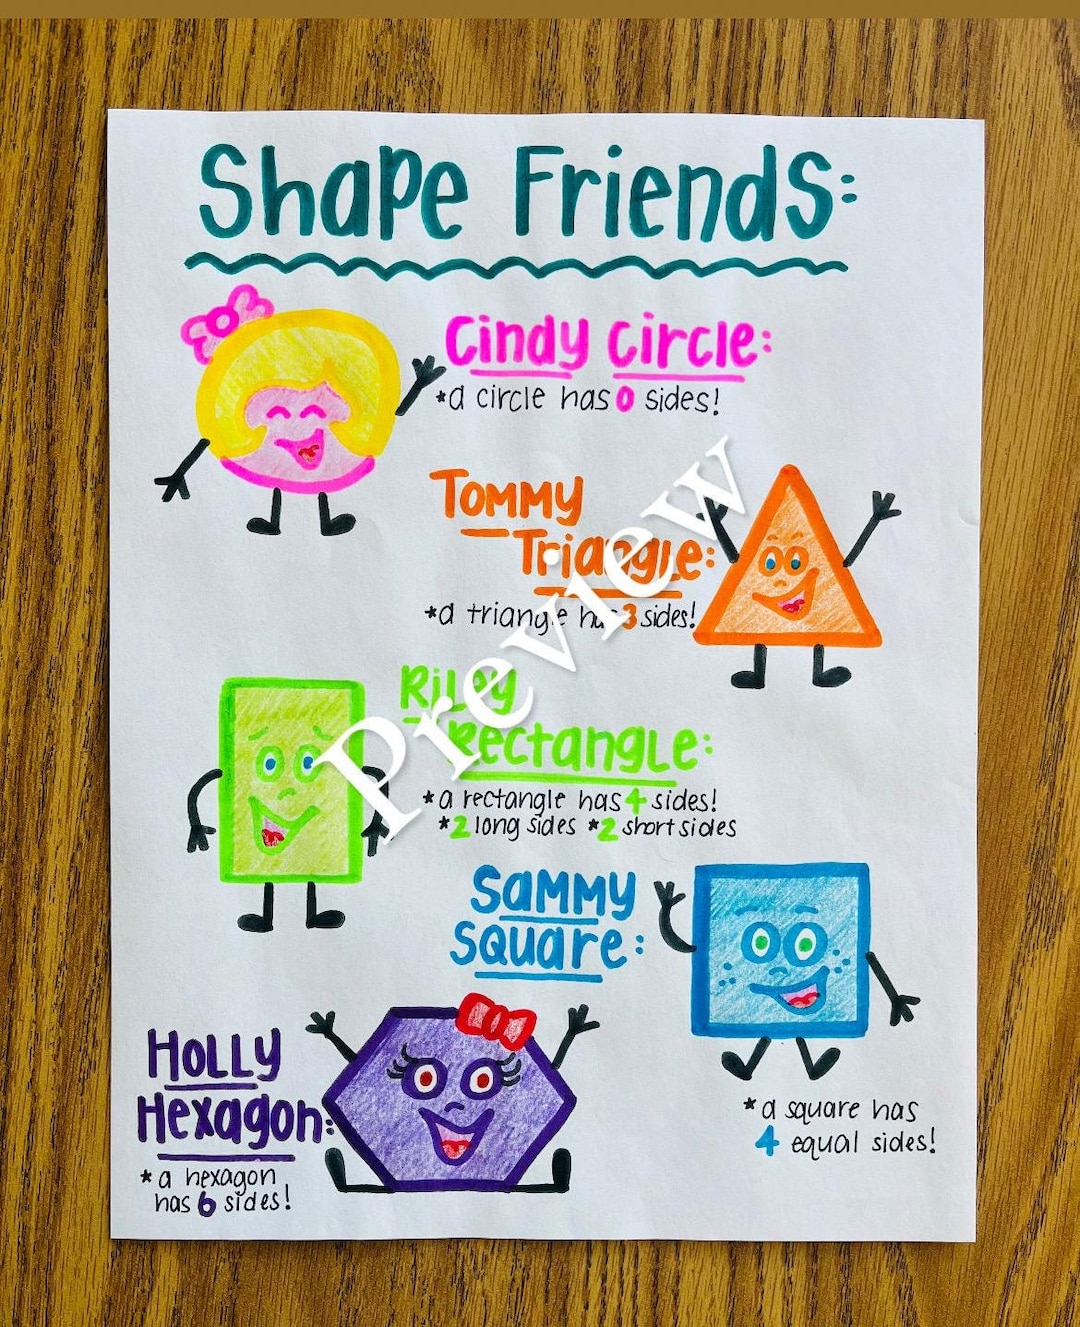 Shape Friends:
Cindy Circle:
*a circle has 0 sides!
Tommy
Triangle:
*a triangle has 3 sides!
Riley
Rectangle:
*a rectangle has 4 sides!
*2 long sides *2 short sides
Sammy
Square:
*a square has
4 equal sides!
Holly
Hexagon:
*a hexagon
has 6 sides!
Preview